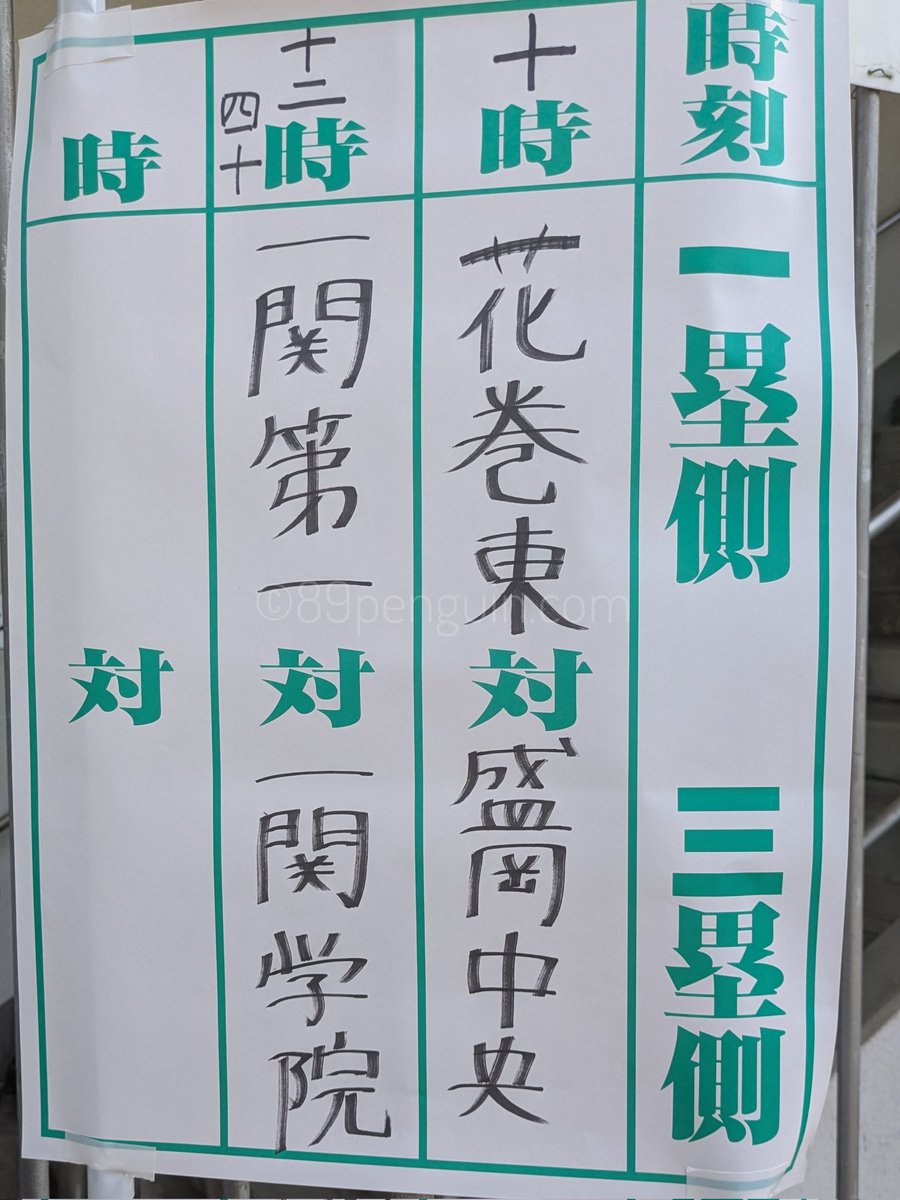 時刻 一塁側 三塁側
十時 花巻東 対 盛岡中央
十二時四十 一関第一 対 一関学院
時 対
©89penguin.com